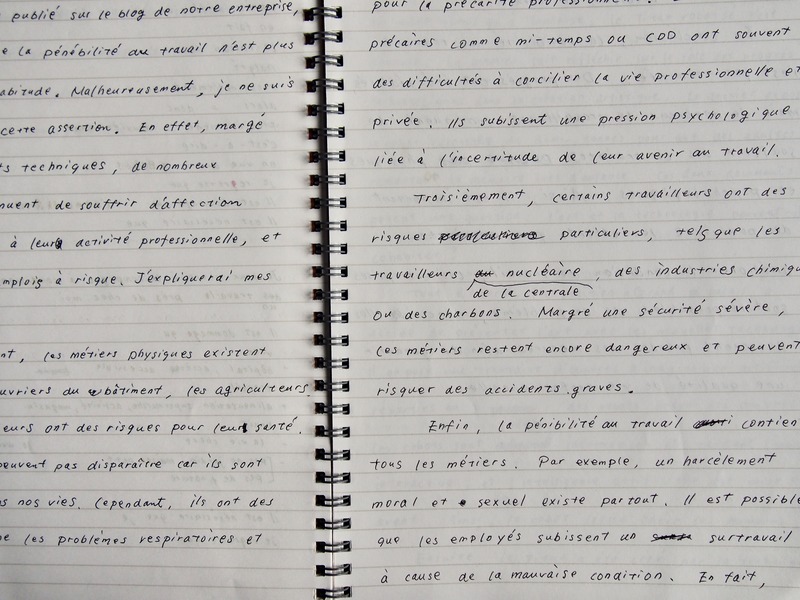 publié sur le blog de notre entreprise,
la pénébilité au travail n'est plus
Malheureusement, je ne suis
cette assertion. En effet, margé
techniques, de nombreux
de souffrir d'affection
à leur activité professionnelle, et
à risque. J'expliquerai mes
les métiers physiques existent
du bâtiment, les agriculteurs
ont des risques pour leur santé.
pas disparaître car ils sont
nos vies. Cependant, ils ont des
les problèmes respiratoires et
pour la précarité
précaires comme mi-temps ou CDD ont souvent
des difficultés à concilier la vie professionnelle et
privée. Ils subissent une pression psychologique
liée à l'incertitude de leur avenir au travail.
Troisièmement, certains travailleurs ont des
risques particuliers, tels que les
travailleurs nucléaire, des industries
de la centrale
ou des charbons. Margré une sécurité sévère,
ces métiers restent encore dangereux et peuvent
risquer des accidents graves.
Enfin, la pénibilité au travail
tous les métiers. Par exemple, un harcèlement
moral et sexuel existe partout. Il est possible
que les employés subissent un surtravail
à cause de la mauvaise condition. En fait,